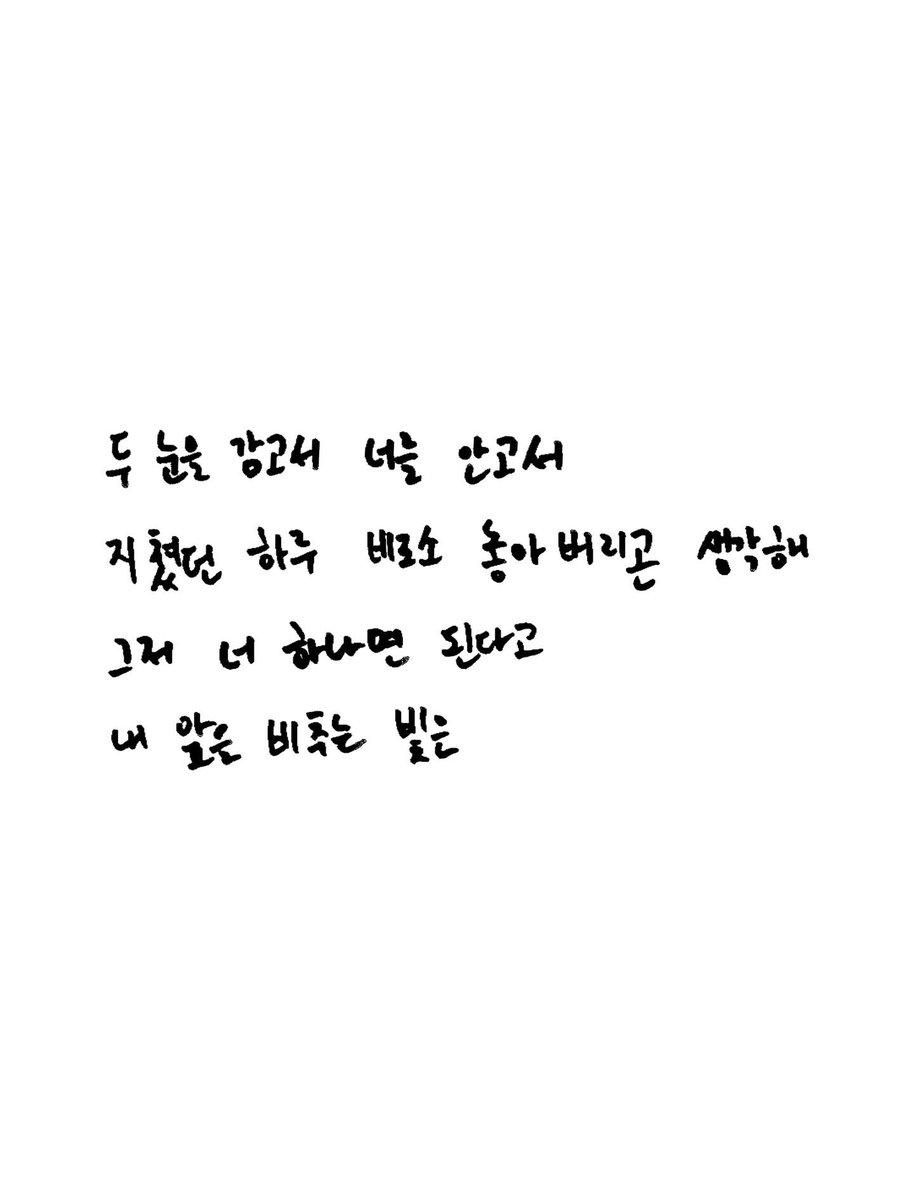 두 눈을 감고서 너를 안고서
지쳤던 하루 비로소 놓아버리곤 생각해
그저 너 하나면 된다고
내 앞을 비추는 빛은